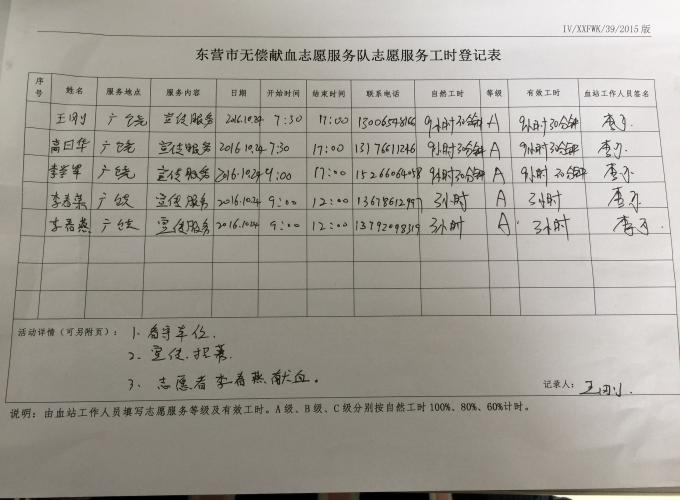 IV/XXFWK/39/2015 版
东营市无偿献血志愿服务队志愿服务工时登记表
序号 姓名 服务地点 服务内容 日期 开始时间 结束时间 联系电话 自然工时 等级 有效工时 血站工作人员签名
王刚 广饶 宣传服务 2016.10.24 7:30 17:00 13006548166 9小时30分钟 A 9小时30分钟
高曰华 广饶 宣传服务 2016.10.24 7:30 17:00 13176511246 9小时30分钟 A 9小时30分钟
广饶 宣传服务 2016.10.24 17:00 15266064058 9小时30分钟 A 9小时30分钟
李春荣 广饶 宣传服务 2016.10.24 9:00 12:00 3小时 A 3小时
李春燕 广饶 宣传服务 2016.10.24 9:00 12:00 13792098319 3小时 A 3小时
活动详情（可另附页）： 1、看守车位.
2、宣传.招募.
3、志愿者李春燕献血。
记录人： 王刚
说明：由血站工作人员填写志愿服务等级及有效工时。A 级、B 级、C 级分别按自然工时 100%、80%、60%计时。